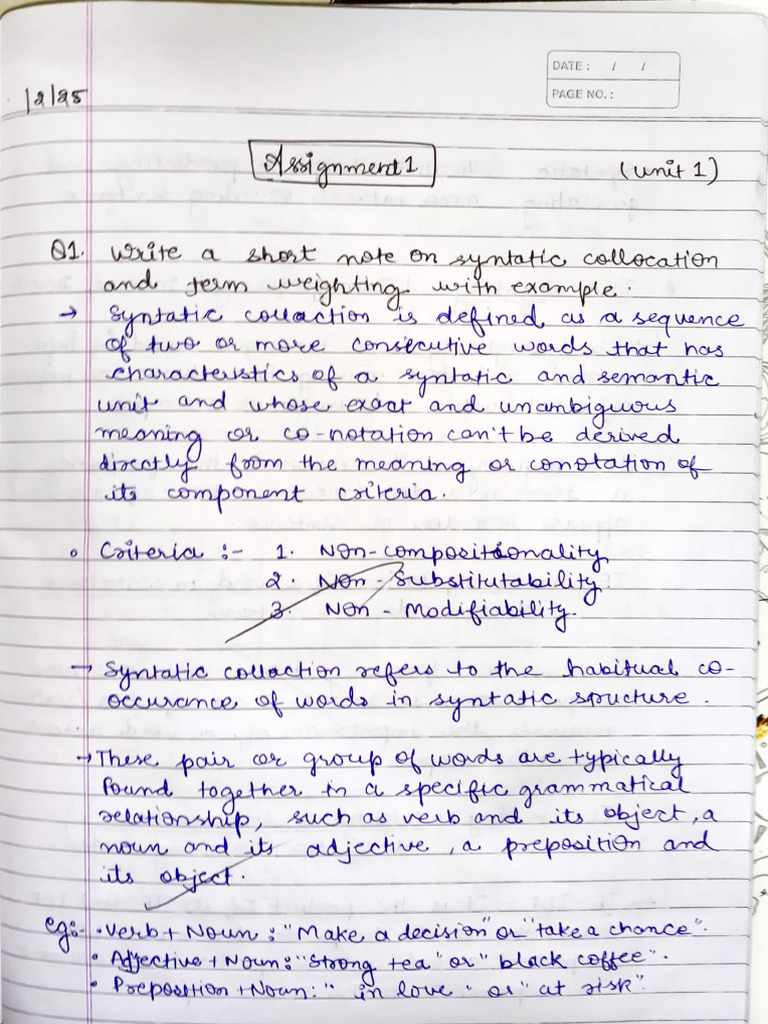 DATE : / /
PAGE NO. :
12/25
Assignment 1 (Unit 1)
Q1. Write a short note on syntatic collocation
and term weighting with example.
→ Syntatic collaction is defined as a sequence
of two or more consecutive words that has
characteristics of a syntatic and semantic
unit and whose exact and unambiguous
meaning or co-notation can't be derived
directly from the meaning or conotation of
its component criteria.
• Criteria :- 1. Non-compositionality
2. Non-Substitutability
3. Non-Modifiability.
→ Syntatic collaction refers to the habitual co-
occurance of words in syntatic structure.
→ These pair or group of words are typically
found together in a specific grammatical
relationship, such as verb and its object, a
noun and its adjective, a preposition and
its object.
eg:- • Verb + Noun : "Make a decision" or "take a chance".
• Adjective + Noun : "Strong tea" or "black coffee".
• Preposition + Noun : "in love" or "at risk".